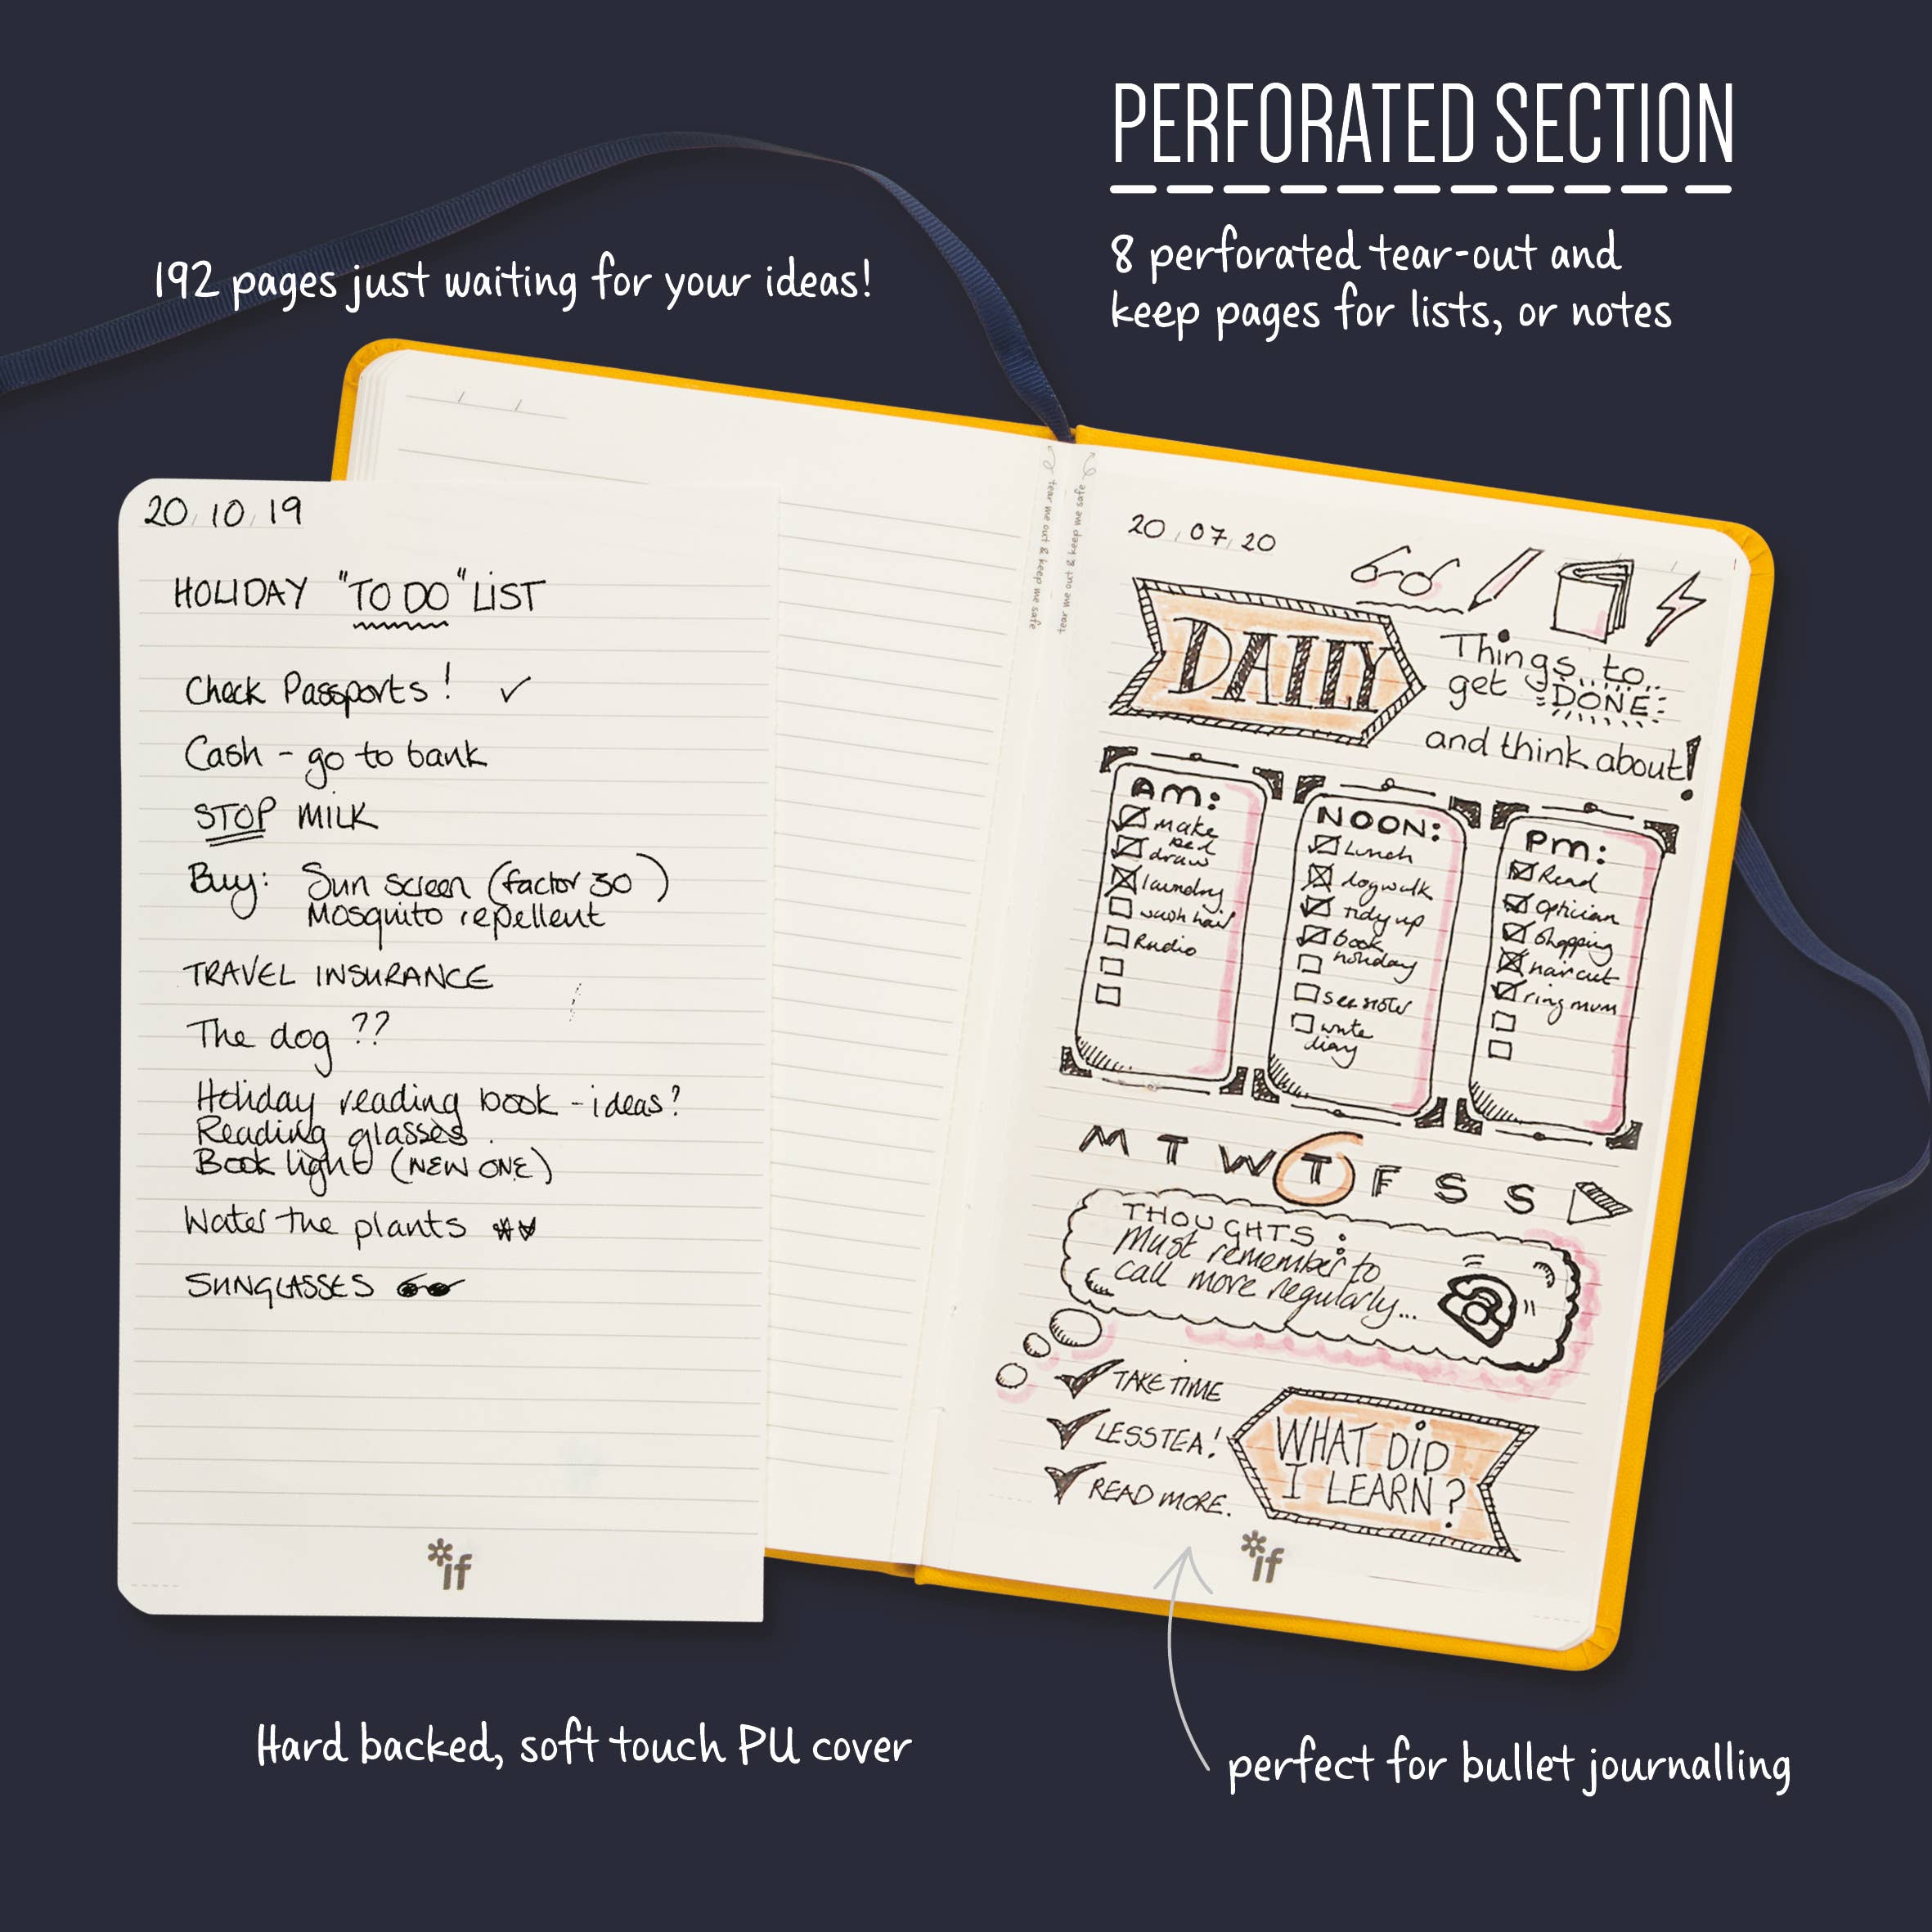 PERFORATED SECTION
8 perforated tear-out and
keep pages for lists, or notes
192 pages just waiting for your ideas!
20 10 19
HOLIDAY "TO DO" LIST
Check Passports! ✓
Cash - go to bank
STOP MILK
Buy: Sun screen (factor 30)
Mosquito repellent
TRAVEL INSURANCE
The dog ??
Holiday reading book - ideas?
Reading glasses.
Book light (NEW ONE)
Water the plants
SUNGLASSES
*if
tear me out & keep me safe
tear me out & keep me safe
20 07 20
DAILY
Things to
get DONE
and think about!
AM:
make
bed
draw
laundry
wash hair
Radio
NOON:
Lunch
dogwalk
Tidy up
book
holiday
write
diary
PM:
Read
Optician
Shopping
haircut
ring mum
M T W T F S S
THOUGHTS:
Must remember to
call more regularly...
TAKE TIME
LESS TEA!
READ MORE.
WHAT DID
I LEARN?
*if
Hard backed, soft touch PU cover
perfect for bullet journalling